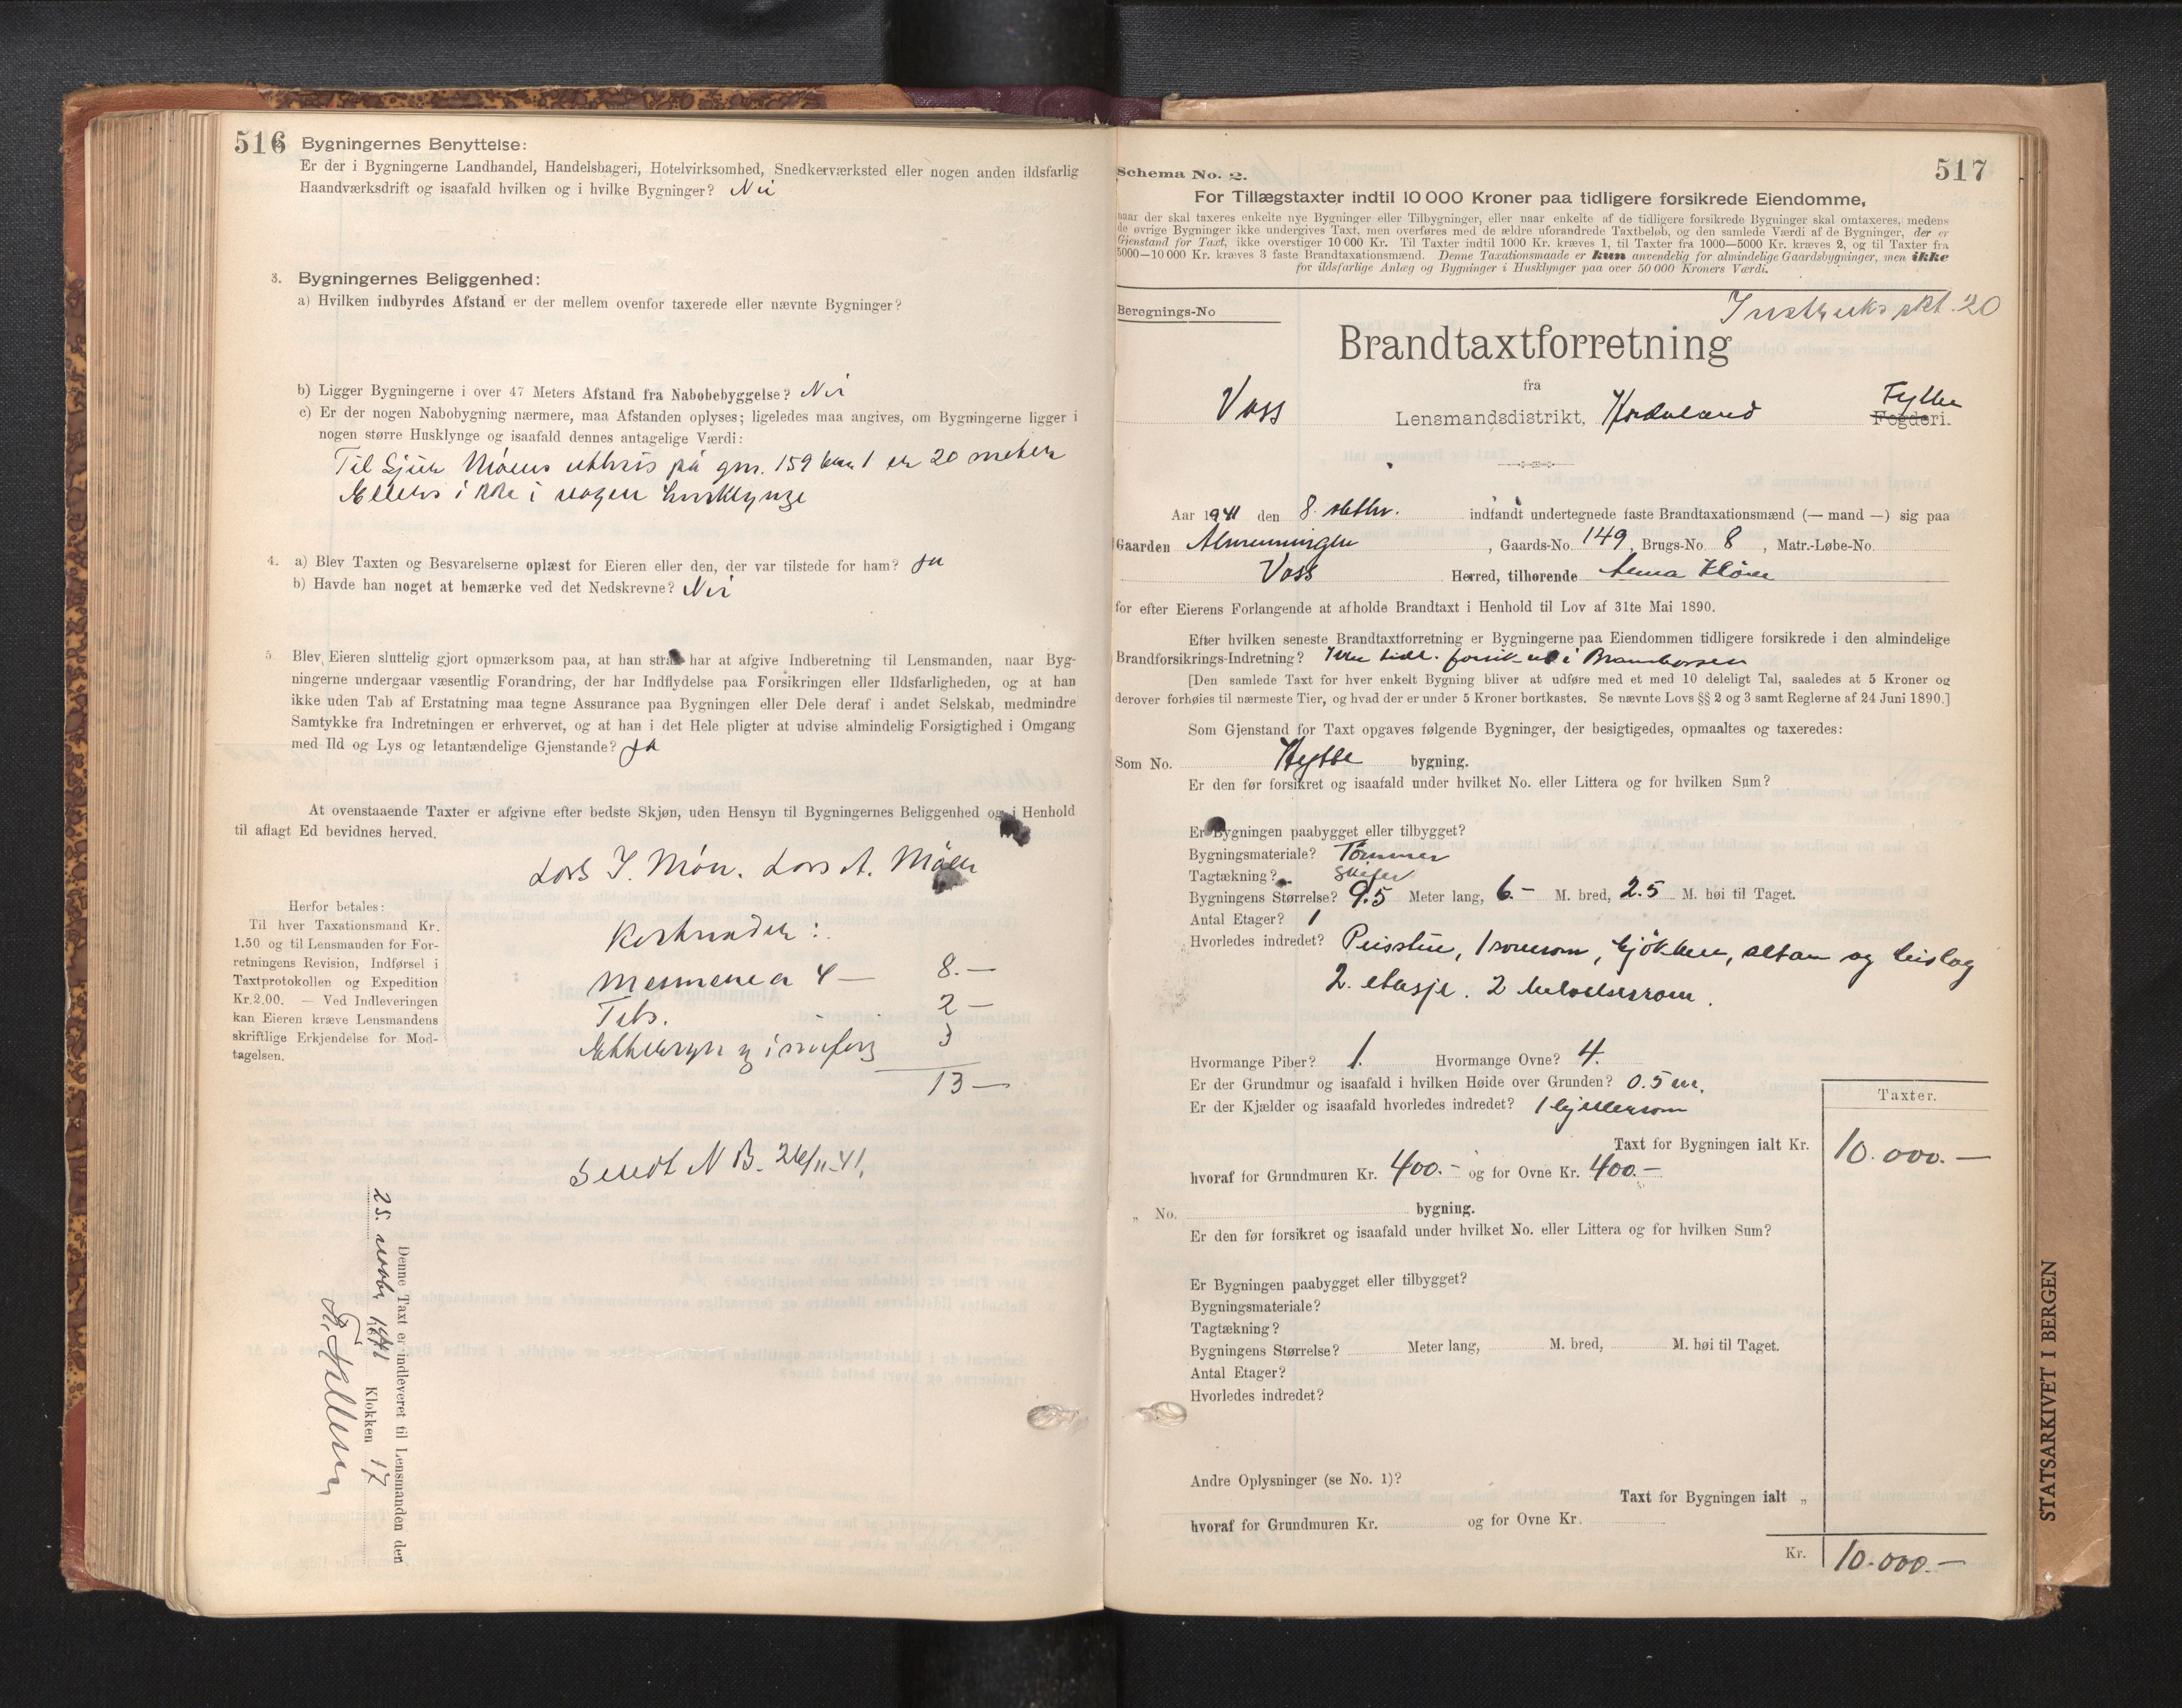 516
Bygningernes Benyttelse:
Er der i Bygningerne Landhandel, Handelsbageri, Hotelvirksomhed, Snedkerværksted eller nogen anden ildsfarlig
Haandværksdrift og isaafald hvilken og i hvilke Bygninger? Nei
3. Bygningernes Beliggenhed:
a) Hvilken indbyrdes Afstand er der mellem ovenfor taxerede eller nævnte Bygninger?
b) Ligger Bygningerne i over 47 Meters Afstand fra Nabobebyggelse? Nei
c) Er der nogen Nabobygning nærmere, maa Afstanden oplyses; ligeledes maa angives, om Bygningerne ligger i
nogen større Husklynge og isaafald dennes antagelige Værdi:
Til Sjur Möens uthus på gnr. 159 bnr 1 er 20 meter
Ellers ikke i nogen husklynge
4. a) Blev Taxten og Besvarelserne oplæst for Eieren eller den, der var tilstede for ham? Ja
b) Havde han noget at bemærke ved det Nedskrevne? Nei
5. Blev Eieren sluttelig gjort opmærksom paa, at han strax har at afgive Indberetning til Lensmanden, naar Byg-
ningerne undergaar væsentlig Forandring, der har Indflydelse paa Forsikringen eller Ildsfarligheden, og at han
ikke uden Tab af Erstatning maa tegne Assurance paa Bygningen eller Dele deraf i andet Selskab, medmindre
Samtykke fra Indretningen er erhvervet, og at han i det Hele pligter at udvise almindelig Forsigtighed i Omgang
med Ild og Lys og letantændelige Gjenstande? Ja
At ovenstaaende Taxter er afgivne efter bedste Skjøn, uden Hensyn til Bygningernes Beliggenhed og i Henhold
til aflagt Ed bevidnes herved.
Lars I. Møn. Lars A. Möen
Herfor betales:
Til hver Taxationsmand Kr.
1.50 og til Lensmanden for For-
retningens Revision, Indførsel i
Taxtprotokollen og Expedition
Kr. 2.00. — Ved Indleveringen
kan Eieren kræve Lensmandens
skriftlige Erkjendelse for Mod-
tagelsen.
Kostnader:
Mennene a 4 — 8.—
2 —
Ettersyn og innførs 3
13 —
Sendt N B. 26/11-41.
Denne Taxt er indleveret til Lensmanden den
25. novbr 1941 Klokken 17
517
Schema No. 2.
For Tillægstaxter indtil 10 000 Kroner paa tidligere forsikrede Eiendomme,
naar der skal taxeres enkelte nye Bygninger eller Tilbygninger, eller naar enkelte af de tidligere forsikrede Bygninger skal omtaxeres, medens
de øvrige Bygninger ikke undergives Taxt, men overføres med de ældre uforandrede Taxtbeløb, og den samlede Værdi af de Bygninger, der er
Gjenstand for Taxt, ikke overstiger 10 000 Kr. Til Taxter indtil 1000 Kr. kræves 1, til Taxter fra 1000—5000 Kr. kræves 2, og til Taxter fra
5000—10 000 Kr. kræves 3 faste Brandtaxationsmænd. Denne Taxationsmaade er kun anvendelig for almindelige Gaardsbygninger, men ikke
for ildsfarlige Anlæg og Bygninger i Husklynger paa over 50 000 Kroners Værdi.
Beregnings-No
Instruks pkt. 20
Brandtaxtforretning
fra
Voss Lensmandsdistrikt, Hordaland Fylke Fogderi.
Aar 1941 den 8. oktbr. indfandt undertegnede faste Brandtaxationsmænd (— mand —) sig paa
Gaarden Almenningen, Gaards-No. 149, Brugs-No. 8, Matr.-Løbe-No.
Voss Herred, tilhørende Anna Kløve
for efter Eierens Forlangende at afholde Brandtaxt i Henhold til Lov af 31te Mai 1890.
Efter hvilken seneste Brandtaxtforretning er Bygningerne paa Eiendommen tidligere forsikrede i den almindelige
Brandforsikrings-Indretning? Ikke tidl. forsikret i Brannkassen
[Den samlede Taxt for hver enkelt Bygning bliver at udføre med et med 10 deleligt Tal, saaledes at 5 Kroner og
derover forhøies til nærmeste Tier, og hvad der er under 5 Kroner bortkastes. Se nævnte Lovs §§ 2 og 3 samt Reglerne af 24 Juni 1890.]
Som Gjenstand for Taxt opgaves følgende Bygninger, der besigtigedes, opmaaltes og taxeredes:
Som No. Hytte bygning.
Er den før forsikret og isaafald under hvilket No. eller Littera og for hvilken Sum?
Er Bygningen paabygget eller tilbygget?
Bygningsmateriale? Tömmer
Tagtækning? Skifer
Bygningens Størrelse? 9.5 Meter lang, 6.- M. bred, 2.5 M. høi til Taget.
Antal Etager? 1
Hvorledes indredet? Peisstue, 1 soverom, kjökken, altan og bislag
2. etasje. 2 beboelsesrom.
Hvormange Piber? 1. Hvormange Ovne? 4.
Er der Grundmur og isaafald i hvilken Høide over Grunden? 0.5 m.
Er der Kjælder og isaafald hvorledes indredet? 1 kjellerrom
Taxter.
Taxt for Bygningen ialt Kr. 10.000.—
hvoraf for Grundmuren Kr. 400.- og for Ovne Kr. 400.-
„ No. bygning.
Er den før forsikret og isaafald under hvilket No. eller Littera og for hvilken Sum?
Er Bygningen paabygget eller tilbygget?
Bygningsmateriale?
Tagtækning?
Bygningens Størrelse? Meter lang, M. bred, M. høi til Taget.
Antal Etager?
Hvorledes indredet?
Andre Oplysninger (se No. 1)?
Taxt for Bygningen ialt „
hvoraf for Grundmuren Kr. og for Ovne Kr.
Kr. 10.000.—
STATSARKIVET I BERGEN